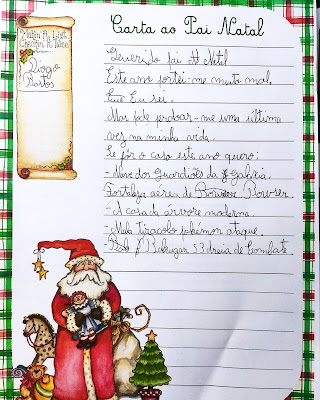 Carta ao Pai Natal
Makin A List,
Checkin It Twice
Diogo
Bastos
Querido pai Natal
Este ano portei-me muito mal,
Eu sei.
Mas pode perdoar-me uma última
vez na minha vida.
Se fôr o caso este ano quero:
-Nave dos Guardiões da Galáxia.
Fortaleza aerea de Bowser.
-A casa da árvore moderna.
-Mala tiracolo pokemon ataque.
Bakugan S3 areia de Combate.